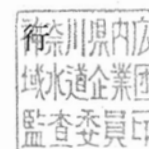 行
神奈川県内広
域水道企業団
監査委員印